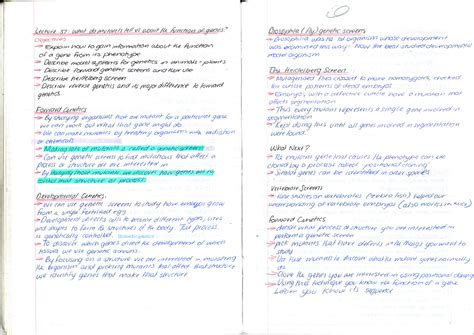 Lecture 37: What do mutants tell us about the function of genes?
Objectives
Explain how to gain information about the function
of a gene from its phenotype
Describe model systems for genetics in animals + plants
Describe forward genetic screen and their use
Describe Heidelberg screen
Describe reverse genetics and its major difference to forward
genetics.
Forward Genetics
By studying organisms that are mutant for a particular gene
we can work out what that gene might do.
We can make mutants by treating organisms with radiation
or chemicals
Making lots of mutants is called a genetic screen
Can use genetic screens to find mutations that affect a
process or structure we are interested in
By studying these mutants we discover how genes act to
control that structure or process.
Developmental Genetics
We can use genetic screens to study how embryos grow
from a single fertilised egg
Development directs cells to become different types, sizes
and shapes to form the structures of the body. This process
is genetically controlled.
To discover which genes direct the development of which
tissues we use genetic screens
By focusing on a structure we are interested in, mutating
the organism and finding mutants that affect that structure
we identify genes that make that structure
Drosophila (Fly) genetic screens
Drosophila was the 1st organism whose development
was examined this way. Now the best studied developmental
model organism.
The Heidelberg Screen
Mutagenised flies crossed to make progeny, checked
for embryos
Embryos with a defective cuticle have a mutation that
affects segmentation
Thus every mutant represents a single gene involved in
segmentation
Kept doing this until all genes involved in segmentation
were found.
What Next?
The mutated gene that causes the phenotype can be
found by a process called 'positional cloning'
Similar genes can be identified in other species
Vertebrate Screens
Like studies on vertebrates (zebra fish) helped our
understanding of vertebrate embryos (also works in mice)
Forward Genetics
Decide what process/structure you are interested in
Perform a genetic screen
Pick mutants that have defects in the things you want to
study
Use these mutants to learn about what genes normally
do.
Clone the genes you are interested in using positional cloning
Using this technique you know the function of a gene
before you know its sequence